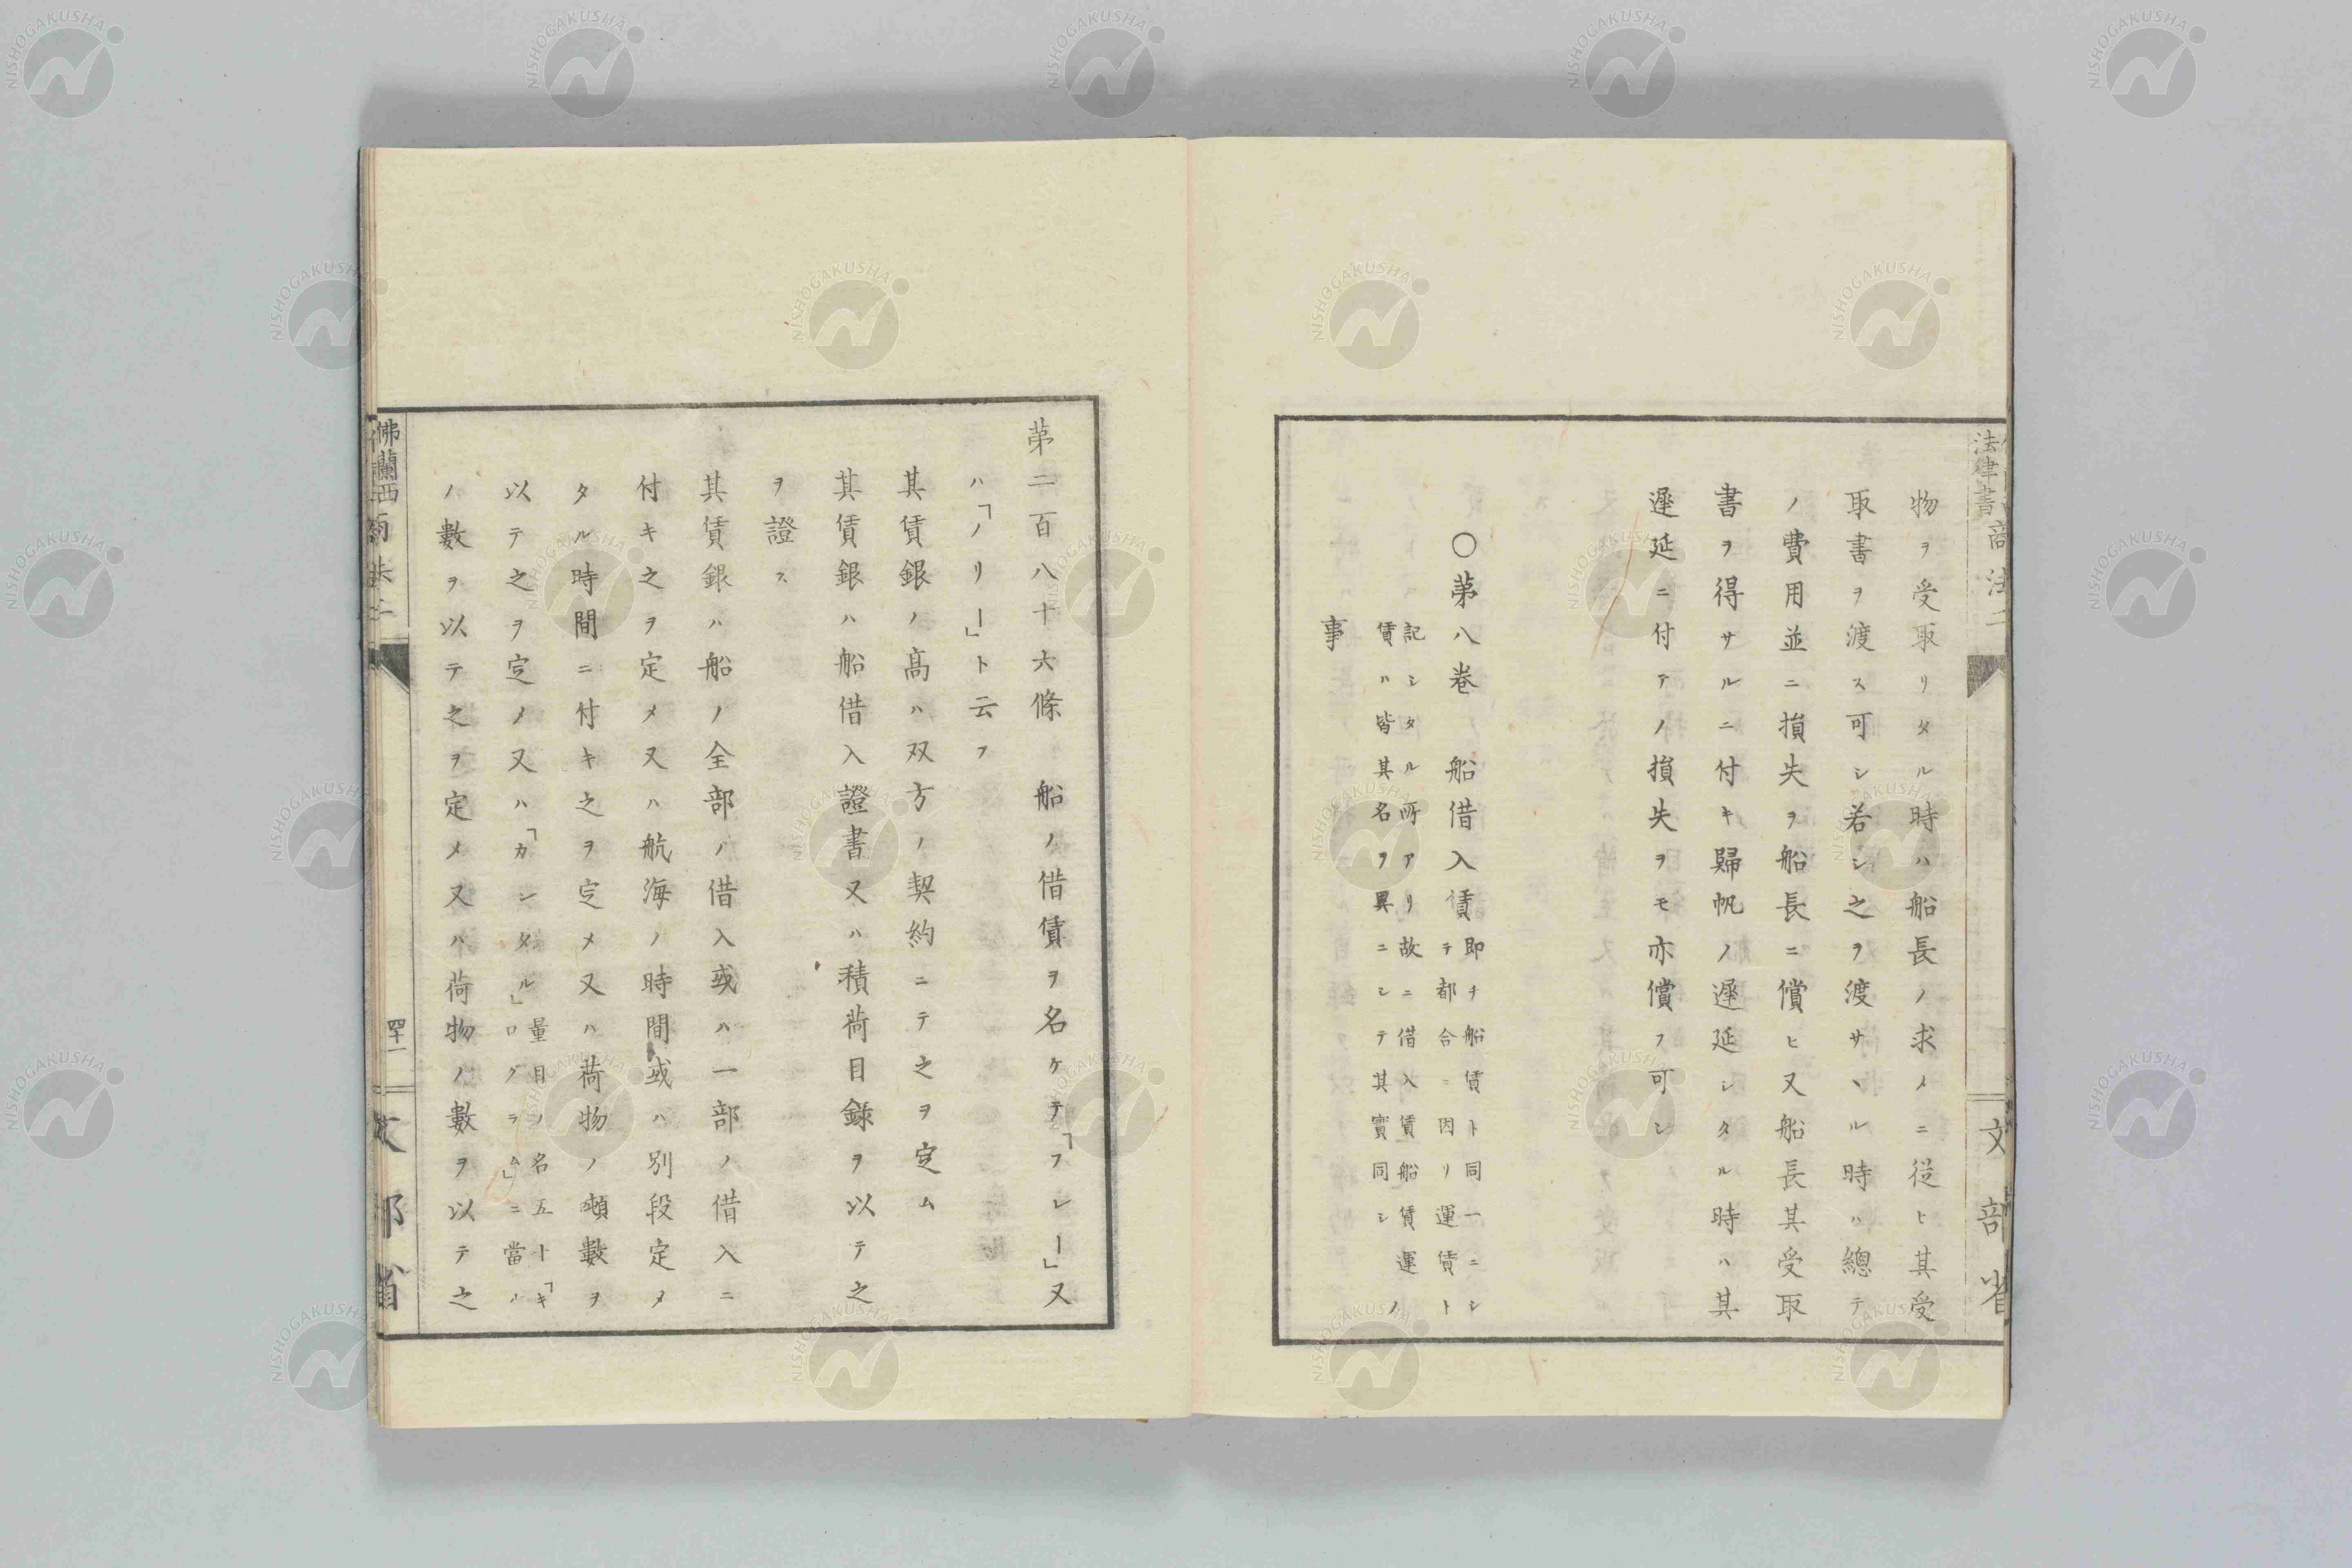 物ヲ受取リタル時ハ船長ノ求メニ從ヒ其受
取書ヲ渡ス可シ若シ之ヲ渡サヽル時ハ總テ
ノ費用並ニ損失ヲ船長ニ償ヒ又船長其受取
書ヲ得サルニ付キ歸帆ノ遲延シタル時ハ其
遲延ニ付テノ損失ヲモ亦償フ可シ
〇第八卷 船借入賃
即チ船賃ト同一ニシ
テ都合ニ因リ運賃ト
記シタル所アリ故ニ借入賃船賃運
賃ハ皆其名ヲ異ニシテ其實同シ
ノ
事
法律書 商法二
文部省
第二百八十六條 船ノ借賃ヲ名ケテ「フレー」又
ハ「ノリー」ト云フ
其賃銀ノ高ハ双方ノ契約ニテ之ヲ定ム
其賃銀ハ船借入證書又ハ積荷目錄ヲ以テ之
ヲ證ス
其賃銀ハ船ノ全部ノ借入或ハ一部ノ借入ニ
付キ之ヲ定メ又ハ航海ノ時間或ハ別段定メ
タル時間ニ付キ之ヲ定メ又ハ荷物ノ噸數ヲ
以テ之ヲ定メ又ハ「カンタル」
量目ノ名五十「キ
ログラム」ニ當ル
ノ數ヲ以テ之ヲ定メ又ハ荷物ノ數ヲ以テ之
佛蘭西 商法二
四十一
文部省
NISHOGAKUSHA